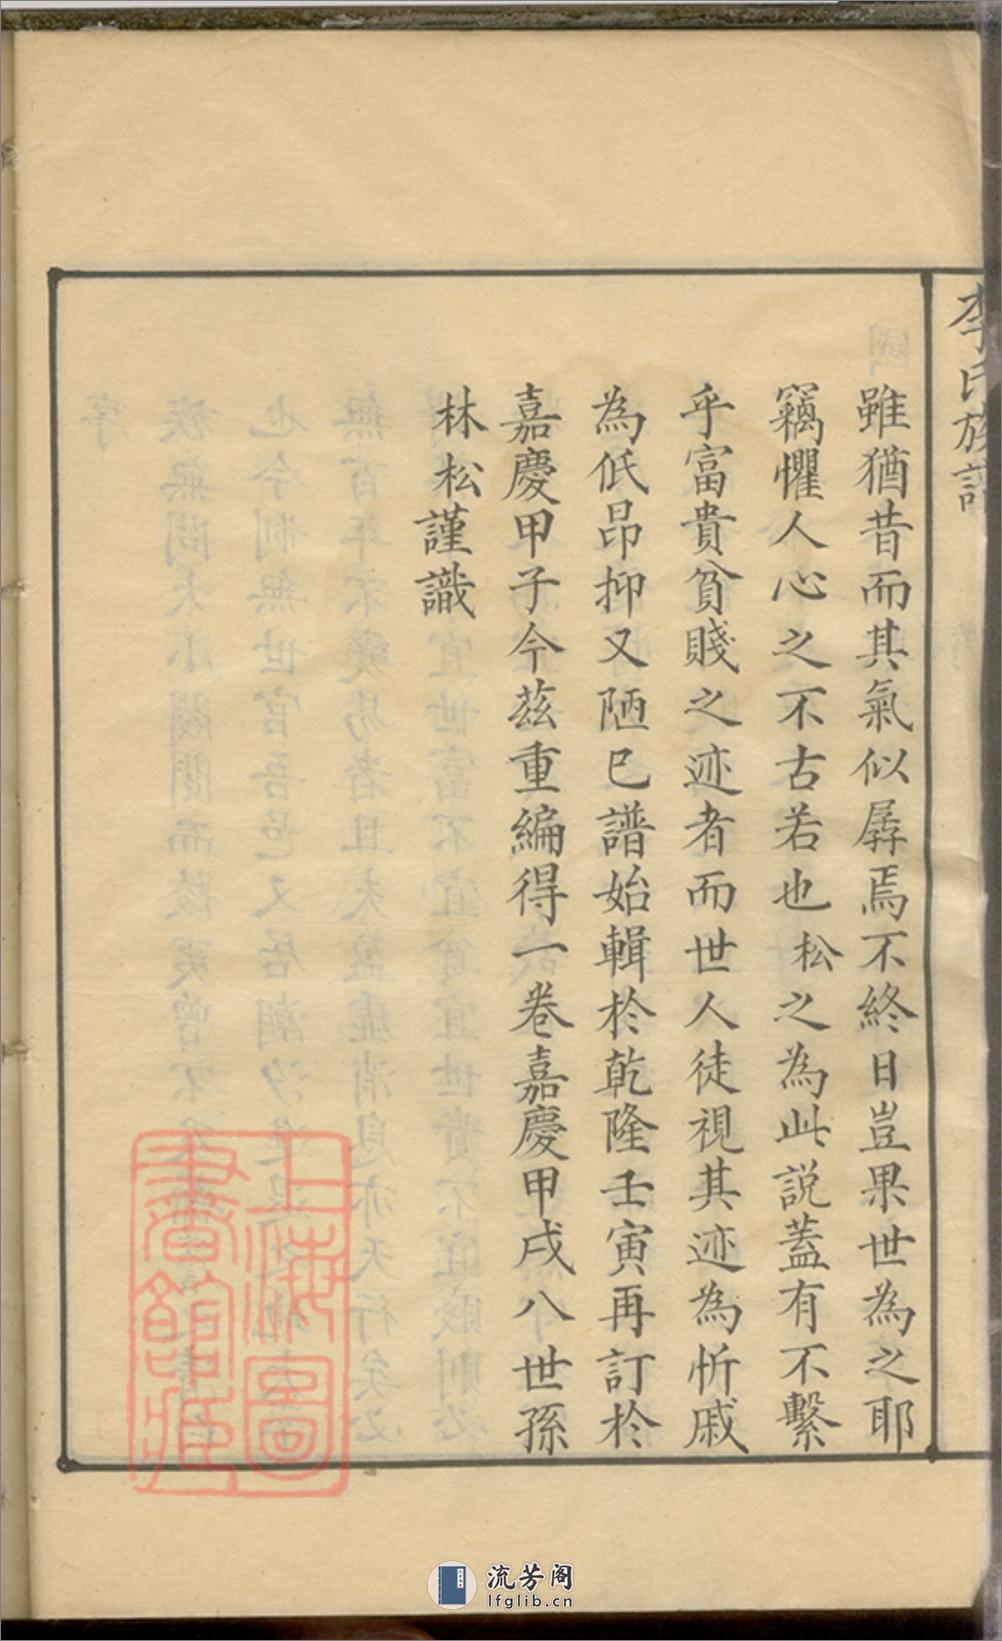 李氏族譜
雖猶昔而其氣似孱焉不終日豈果世為之耶
竊懼人心之不古若也松之為此説蓋有不繫
乎富貴貧賤之迹者而世人徒視其迹為忻戚
為低昂抑又陋已譜始輯於乾隆壬寅再訂於
嘉慶甲子今茲重編得一卷嘉慶甲戌八世孫
林松謹識
上海圖
書館藏
流芳阁
lfglib.cn